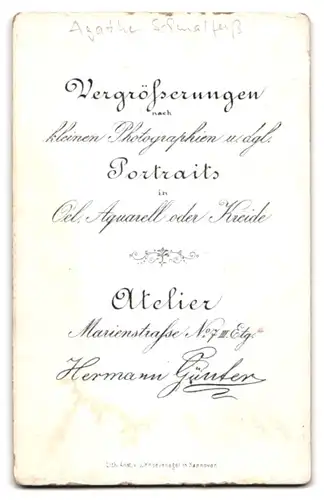 Agathe Schmalfuß
Vergröſserungen
nach
kleinen Photographien u. dgl.
Portraits
in
Oel, Aquarell oder Kreide
Atelier
Marienstraſse No. 7 III. Etg.
Hermann Günter
Lith. Anst. v. in Hannover.